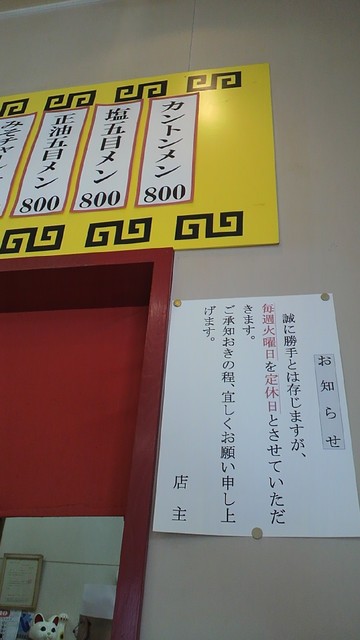 カントンメン
800
塩五目メン
800
正油五目メン
800
お知らせ
誠に勝手とは存じますが、
毎週火曜日を定休日とさせていただ
きます。
ご承知おきの程、宜しくお願い申し上
げます。
店主